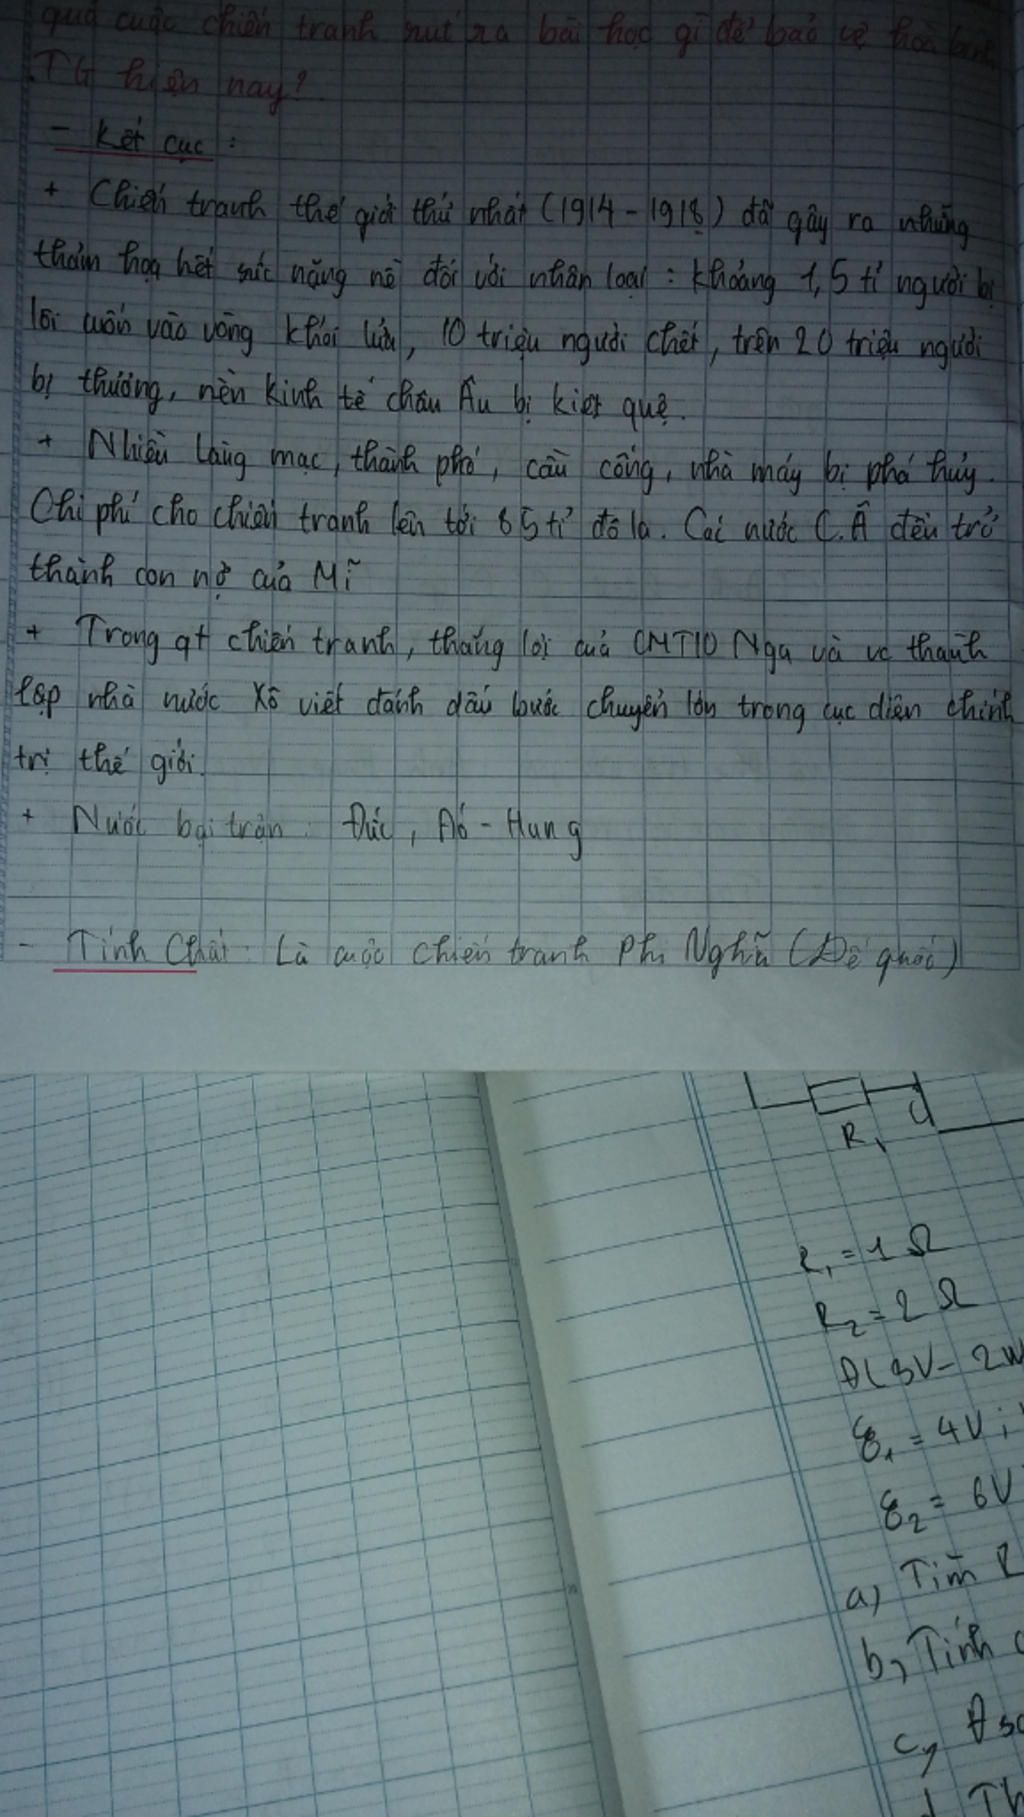 quả cuộc chiến tranh rút ra bài học gì để bảo vệ hoà bình
TG hiện nay?
- Kết cục :
+ Chiến tranh thế giới thứ nhất (1914 - 1918) đã gây ra những
thảm họa hết sức nặng nề đối với nhân loại : Khoảng 1,5 tỉ người bị
lôi cuốn vào vòng khói lửa, 10 triệu người chết, trên 20 triệu người
bị thương, nền kinh tế châu Âu bị kiệt quệ.
+ Nhiều làng mạc, thành phố, cầu cống, nhà máy bị phá hủy.
Chi phí cho chiến tranh lên tới 85 tỉ đô la. Các nước C.Â đều trở
thành con nợ của Mĩ
+ Trong qt chiến tranh, thắng lợi của CMT10 Nga và vc thành
lập nhà nước Xô viết đánh dấu bước chuyển lớn trong cục diện chính
trị thế giới.
+ Nước bại trận : Đức, Áo - Hung
- Tính Chất : Là cuộc chiến tranh Phi Nghĩa (Đế quốc)
R₁
d
R₁ = 1 Ω
R₂ = 2 Ω
Đ(3V - 2W
ℰ₁ = 4V ;
ℰ₂ = 6V
a) Tìm R
b, Tính
c, Đ
Th